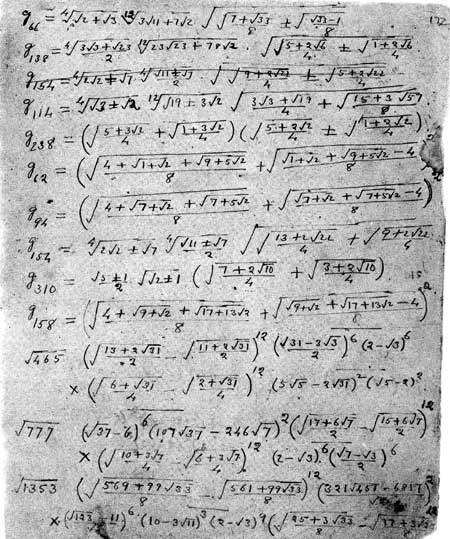 172
g₆₆ = ⁴√(√2+√3) ¹²√(3√11+7√2) √(√((7+√33)/8) ± √((√33-1)/8))
g₁₃₈ = ⁴√((3√3±√23)/2) ¹²√(23√23+78√2) · √(√((5+2√6)/4) ± √((1+2√6)/4))
g₁₅₄ = ⁴√(2√2±√7) ⁴√(√11±√7)/2 · √(√((9+2√22)/4) ± √((5+2√22)/4))
g₁₁₄ = ⁴√(√3±√2) ¹²√(√19±3√2) √((3√3+√19)/4 + √((15+3√57)/8))
g₂₃₈ = (√((5+3√2)/4) + √((1+3√2)/4)) (√((5+2√2)/4) ± √((1+2√2)/4))
g₆₂ = (√((4+√(1+√2)+√(9+5√2))/8) + √((√(1+√2)+√(9+5√2)-4)/8))²
g₉₄ = (√((4+√(7+√2)+√(7+5√2))/8) + √((√(7+√2)+√(7+5√2)-4)/8))²
g₁₅₄ = ⁴√(2√2±√7) ⁴√((√11±√7)/2) √(√((13+2√22)/4) + √((9+2√22)/4))
g₃₁₀ = (√5±1)/2 √(√2±1) (√((7+2√10)/4) + √((3+2√10)/4))
g₁₅₈ = (√((4+√(9+√2)+√(17+13√2))/8) + √((√(9+√2)+√(17+13√2)-4)/8))²
√465 (√((13+2√31)/2) - √((11+2√31)/2))¹² ((√31-3√3)/2)⁶ (2-√3)⁶
× (√((6+√31)/4) - √((2+√31)/4))¹² (5√5-2√31)² (√5-2)²
√777 (√37-6)⁶ (107√37-246√7)² (√((17+6√7)/2) - √((15+6√7)/2))¹²
× (√((10+3√7)/4) - √((6+3√7)/4))¹² (2-√3)⁶ ((√7-√3)/2)⁶
√1353 (√((569+99√33)/8) - √((561+99√33)/8))¹² ((321√451-6817)/√2)²
× ((√123-11)/√2)⁶ (10-3√11)³ (2-√3)⁹ (√((25+3√33)/8) - √((17+3√33)/8))¹²